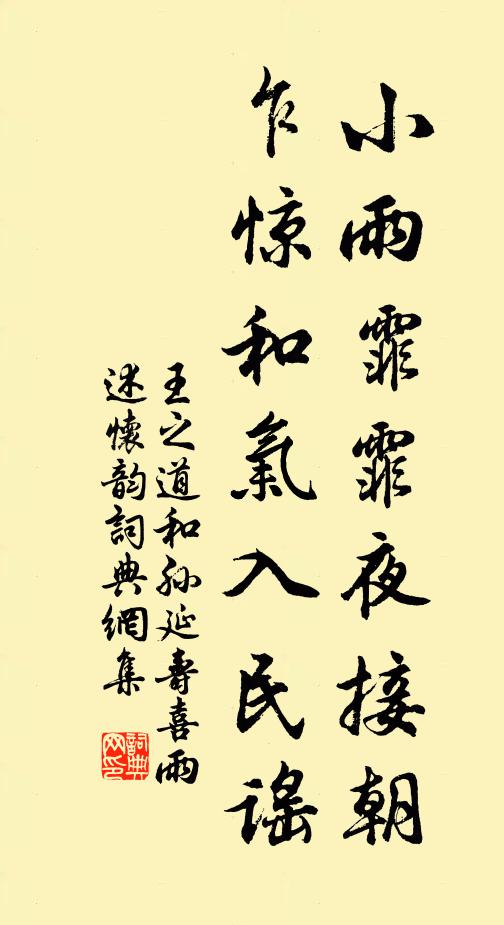 小雨霏霏夜接朝
乍惊和氣入民謡
王之道和孙延壽喜雨
述懷韵詞典網集
詞典
网印